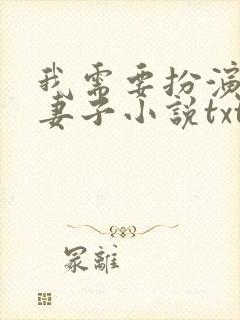 我需要扮演
妻子小説txt
冢離